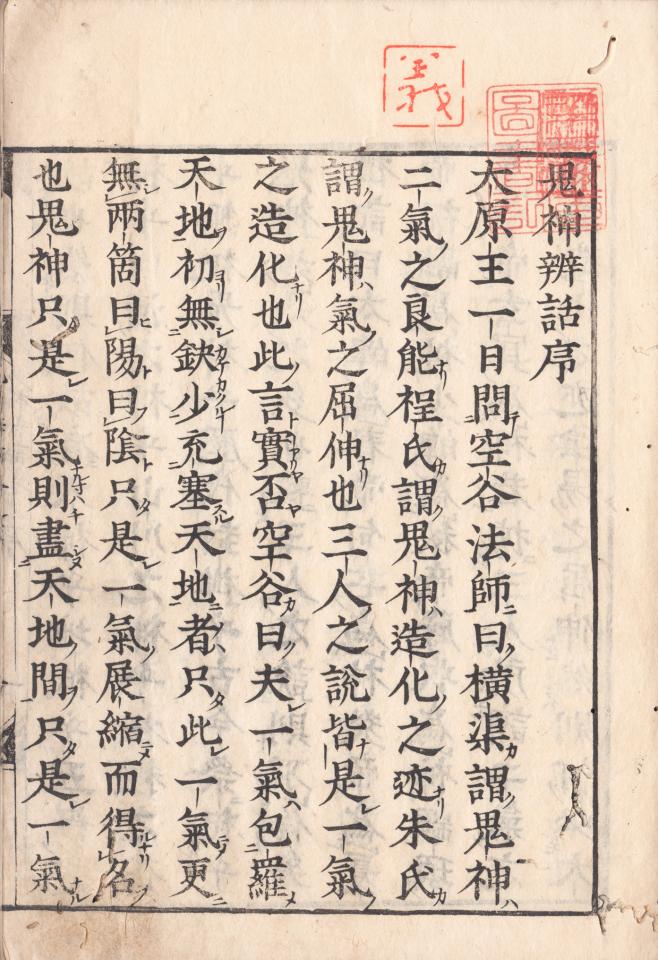 義
鬼神辨話序
太原王一日問空谷法師曰橫渠謂鬼神
二氣之良能程氏謂鬼神造化之迹朱氏
謂鬼神氣之屈伸也三人之說皆是一氣
之造化也此言實否空谷曰夫一氣包羅
天地初無缺少充塞天地者只此一氣更
無兩箇曰陽曰陰只是一氣展縮而得名
也鬼神只是一氣則盡天地間只是一氣